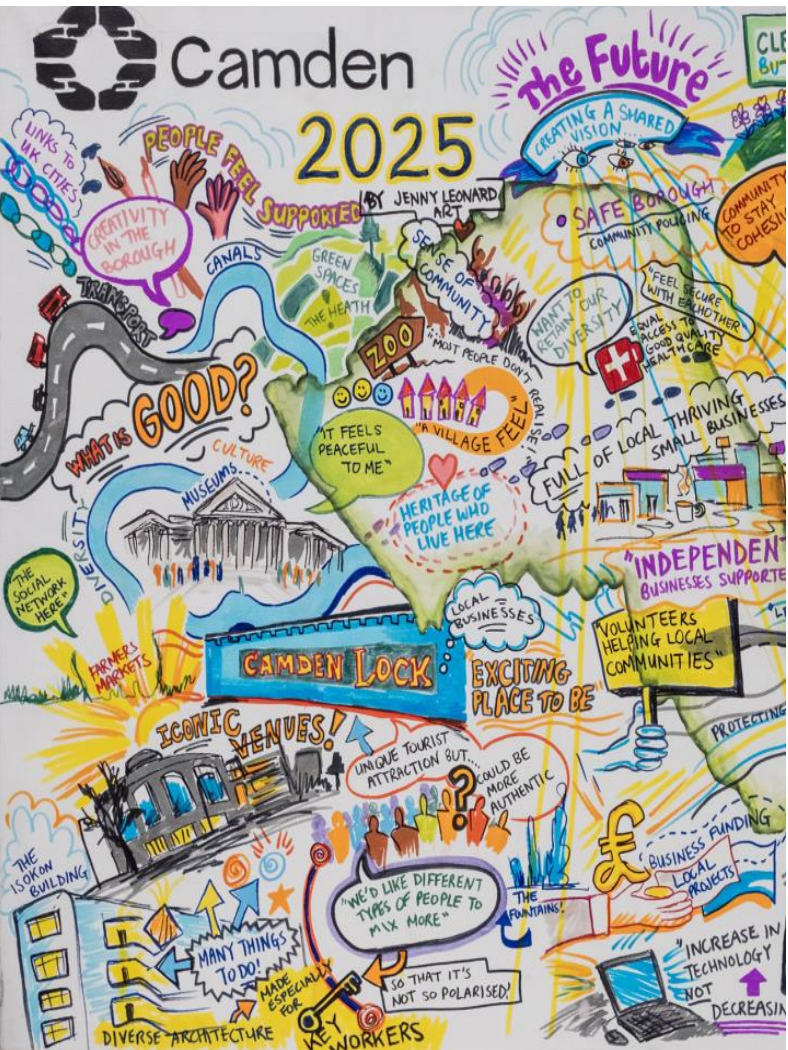 Camden
2025
BY JENNY LEONARD
ART
The Future
CREATING A SHARED
VISION...
CLE
BU
LINKS TO
UK CITIES
PEOPLE FEEL
SUPPORTED
CREATIVITY
IN THE
BOROUGH
TRANSPORT
CANALS
GREEN
SPACES
THE HEATH
SENSE OF
COMMUNITY
SAFE BOROUGH
COMMUNITY POLICING
COMMUNITY
TO STAY
COHESI
WANT TO
RETAIN OUR
DIVERSITY
"FEEL SECURE
WITH EACHOTHER"
EQUAL
ACCESS TO
GOOD QUALITY
HEALTHCARE
ZOO
"MOST PEOPLE DON'T
REALISE!
"A VILLAGE FEEL"
WHAT IS GOOD?
"IT FEELS
PEACEFUL
TO ME"
HERITAGE OF
PEOPLE WHO
LIVE HERE
FULL OF LOCAL THRIVING
SMALL BUSINESSES
CULTURE
MUSEUMS...
DIVERSITY
"THE
SOCIAL
NETWORK
HERE"
"INDEPENDEN
BUSINESSES SUPPORTE
LOCAL
BUSINESSES
"VOLUNTEERS
HELPING LOCAL
COMMUNITIES"
"LE
FARMERS
MARKETS
CAMDEN LOCK
EXCITING
PLACE TO BE"
ICONIC VENUES!
UNIQUE TOURIST
ATTRACTION BUT...
COULD BE
MORE
AUTHENTIC
?
PROTECTING
THE
ISOKON
BUILDING
"WE'D LIKE DIFFERENT
TYPES OF PEOPLE TO
MIX MORE"
THE
FOUNTAINS!
£
BUSINESS FUNDING
LOCAL
PROJECTS
MANY THINGS
TO DO!
MADE
ESPECIALLY
FOR
KEY
WORKERS
SO THAT IT'S
NOT SO POLARISED!
"INCREASE IN
TECHNOLOGY
NOT
DECREASIN
DIVERSE ARCHITECTURE